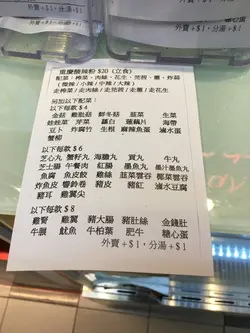 外賣+$1，分湯+$1
重慶酸辣粉 $20（立食）
配菜：榨菜、肉絲、花生、芫茜、蔥、炸蒜
（微辣／小辣／中辣／大辣）
走榨菜／走肉絲／走芫茜／走蔥／走花生
另加以下配菜：
以下每款 $4
金菇 雞脾菇 鮮冬菇 韮菜 生菜
娃娃菜 芽菜 蘿白 蓮藕片 海帶
豆卜 炸腐竹 生根 麻辣魚蛋 鹵水蛋
蟹柳
以下每款 $6
芝心丸 蟹籽丸 海膽丸 貢丸 牛丸
芝士腸 牛餐肉 紅腸 墨魚丸 墨汁墨魚丸
魚腐 魚皮餃 雞絲 韮菜雲吞 椰菜雲吞
炸魚皮 響鈴卷 豬皮 豬紅 鹵水豆腐
豬耳 雞翼尖
以下每款 $8
雞腎 雞翼 豬大腸 豬肚絲 金錢肚
牛𦟌 魷魚 牛柏葉 肥牛 糖心蛋
外賣+$1，分湯+$1